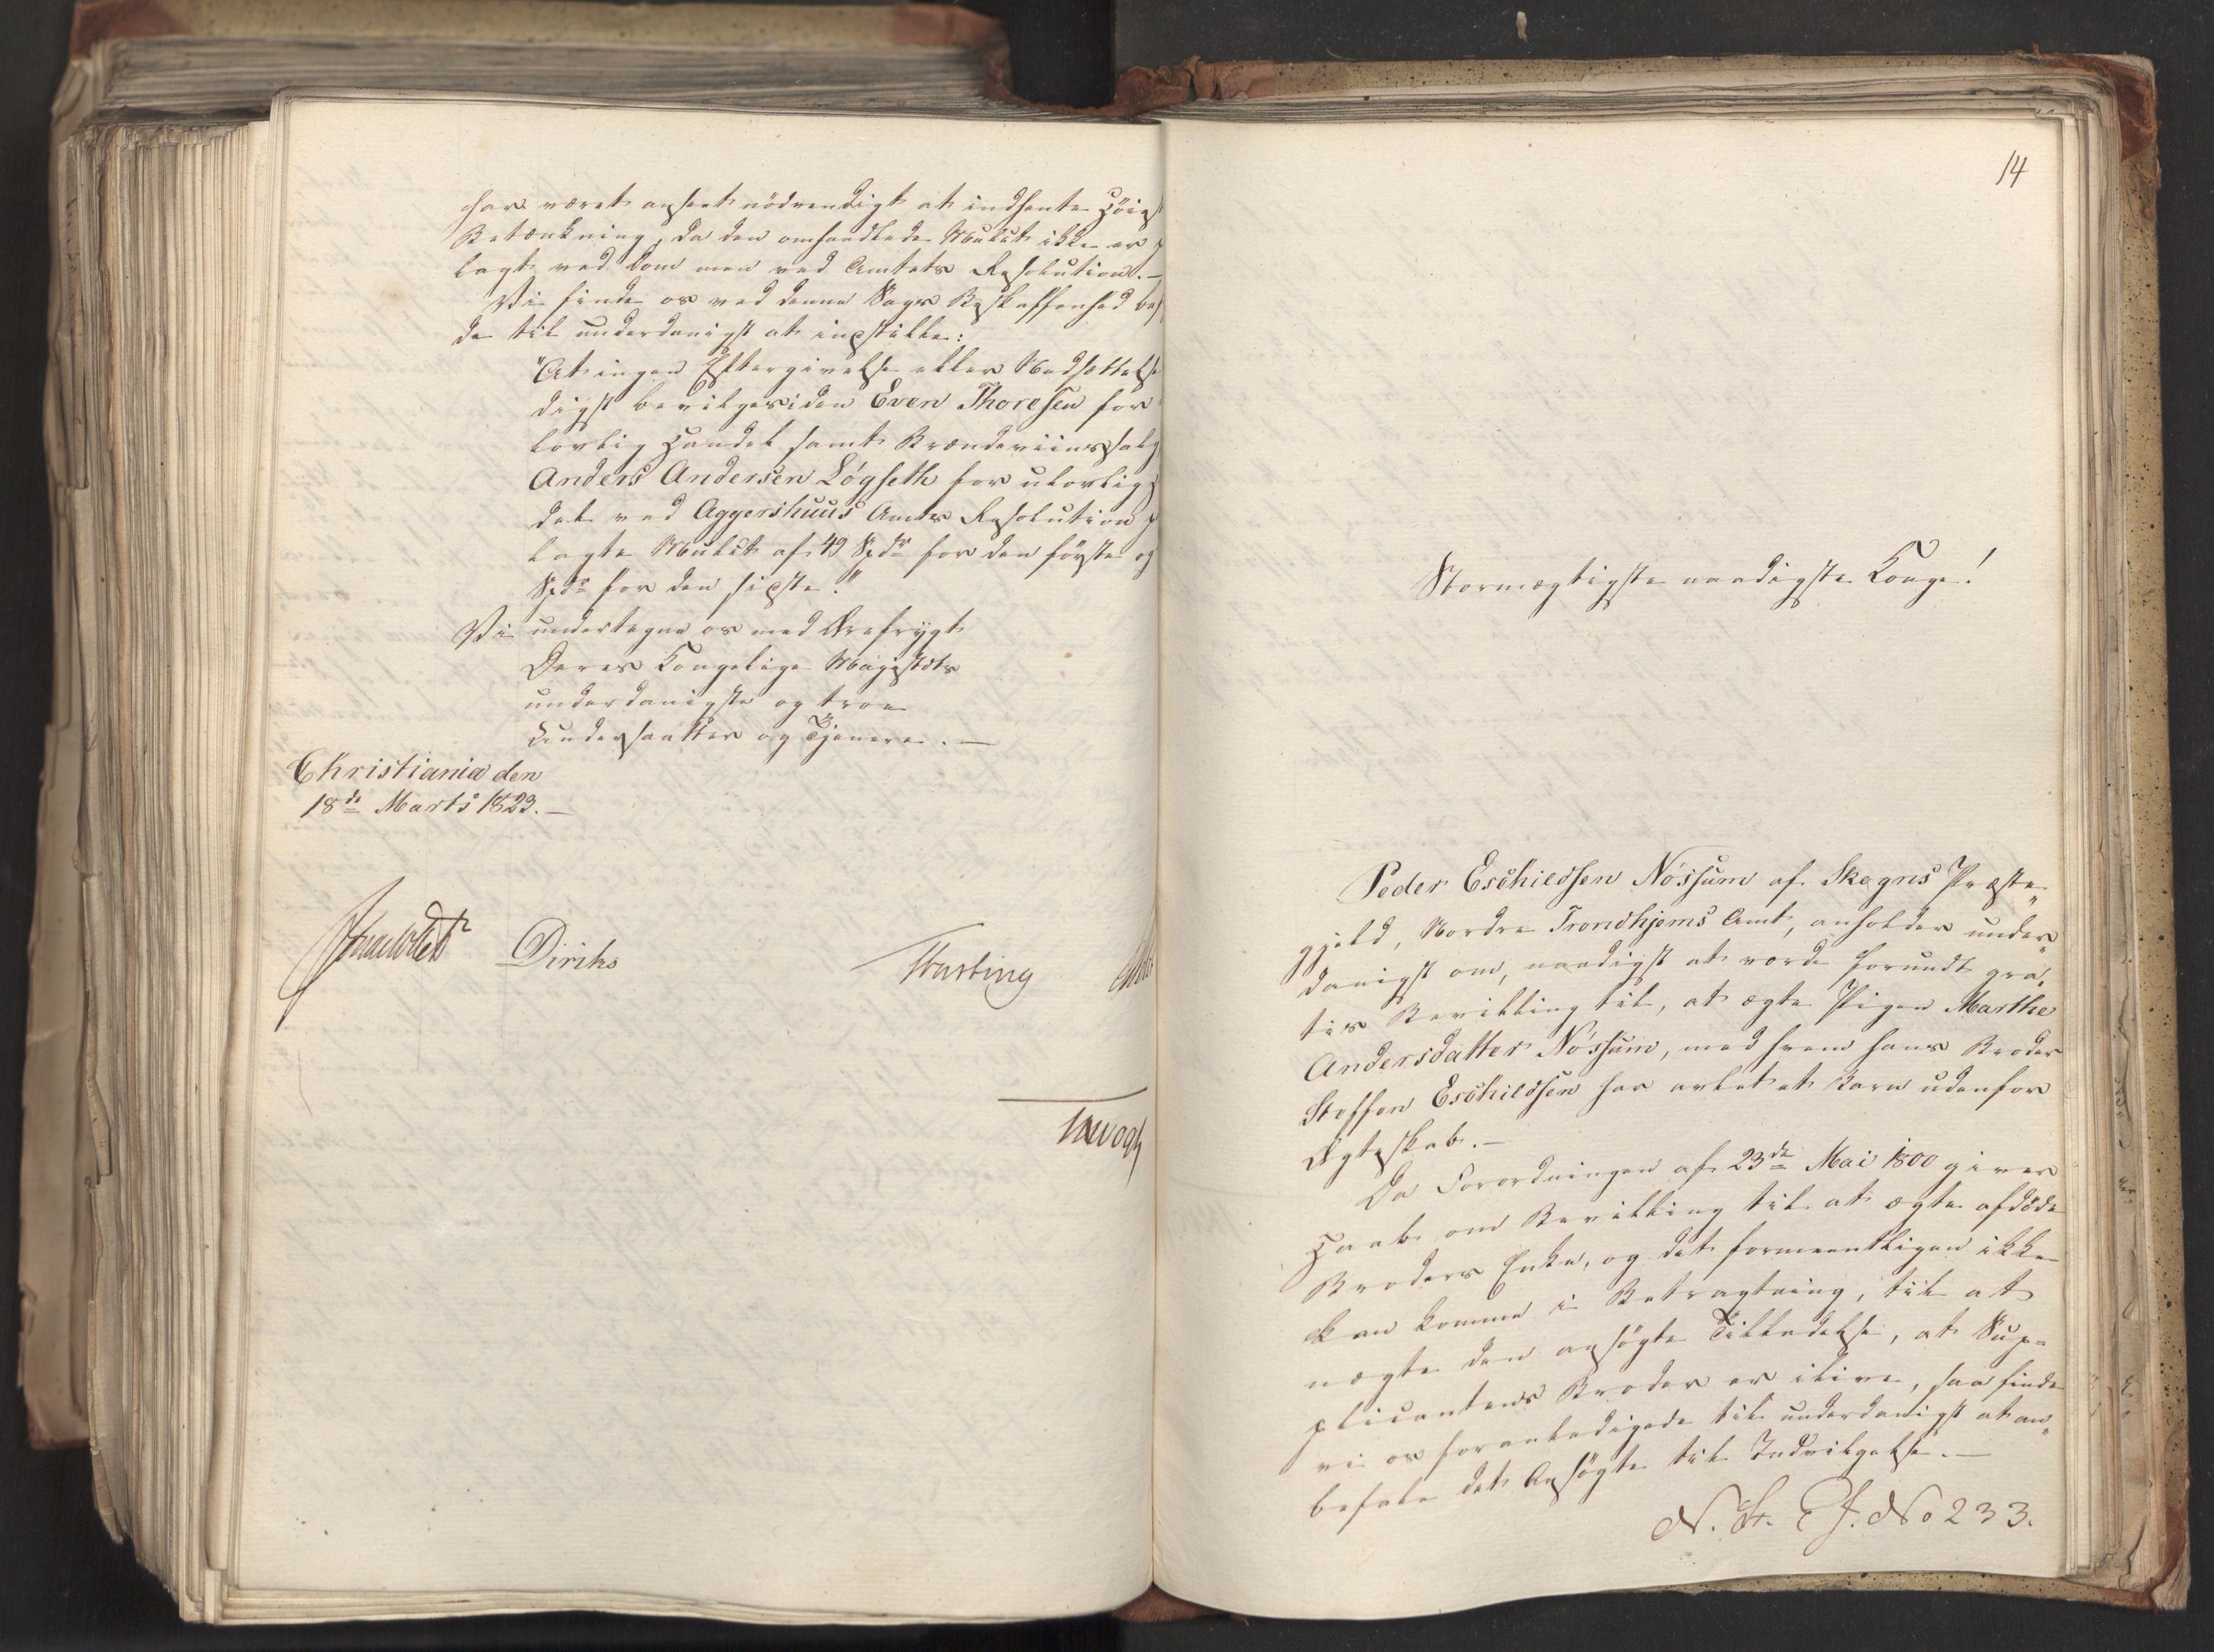 har været anseet nödvendigt at indhente Höies
Betænkning, da den omhandlede Mulct ikke er p
lagt ved Dom men ved Amtets Resolution. —
Vi finde os ved denne Sags Beskaffenhed
de til underdanigst at indstille:
"At ingen Eftergivelse eller Nedsættelse
digst bevilges i den Even Thoresen for
lovlig Handel samt Brændeviinssalg
Anders Andersen Løgseth for ulovlig H
del ved Aggershuus Amts Resolution p
lagte Mulct af 49 Spdr for den förste og
Spdr for den sidste."
Vi undertegne os med Ærefrygt
Deres Kongelige Majestæts
underdanigste og troe
Undersaatter og Tjenere. —
Christiania den
18de Marts 1823. —
Diriks
14
Stormægtigste naadigste Konge!
Peder Eschildsen Nössum af Skogns Præste„
gjeld, Nordre Trondhjems Amt, anholder under„
danigst om, naadigst at vorde forundt gra„
tis Bevilling til, at ægte Pigen Marthe
Andersdatter Nössum, med hvem hans Broder
Steffen Eschildsen har avlet et Barn udenfor
Ægteskab. —
Da Forordningen af 23de Mai 1800 giver
Haab om Bevilling til at ægte afdöde
Broders Enke, og det formeentligen ikke
kan komme i Betragtning, til at
nægte den ansögte Tilladelse, at Sup=
plicantens Broder er ilive, saa finde
vi os foranledigede til underdanigst at an„
befale det Ansögte til Indvilgelse. —
N. St. E J. No 233.